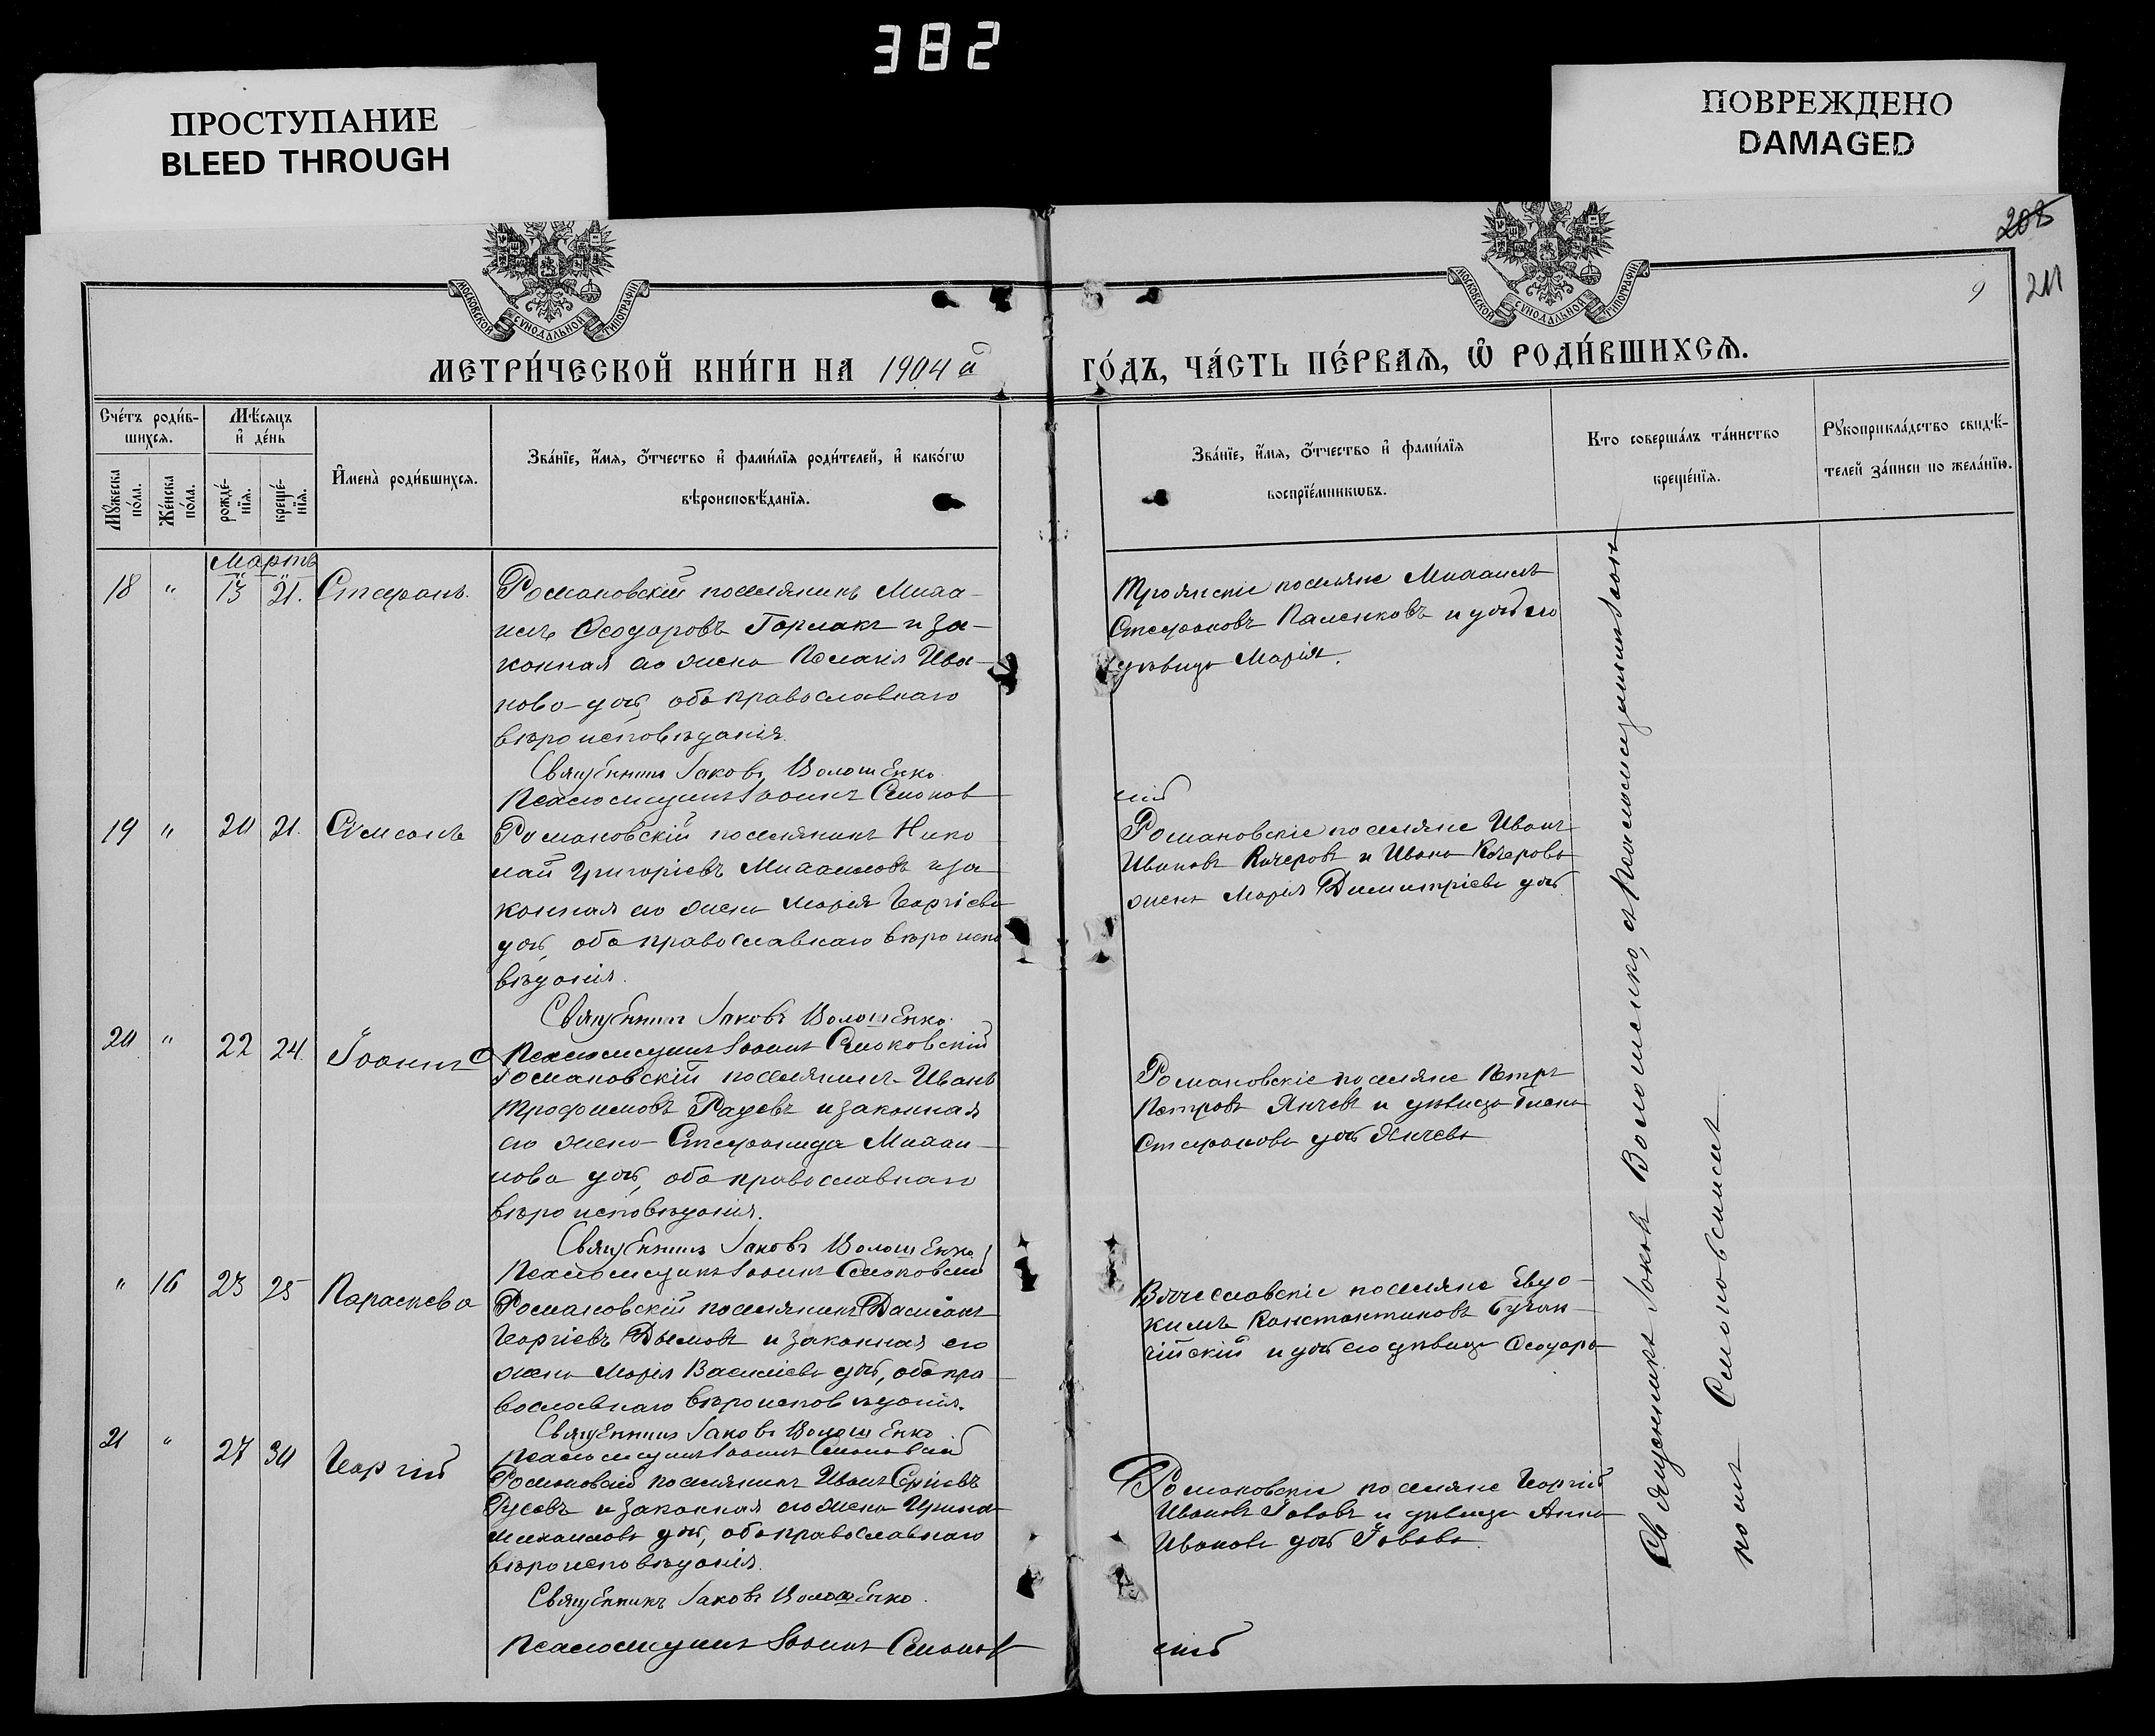 382
ПРОСТУПАНИЕ
BLEED THROUGH
ПОВРЕЖДЕНО
DAMAGED
208
9
211
МОСКОВСКОЙ СѴНОДАЛЬНОЙ ТИПОГРАФІИ
МОСКОВСКОЙ СѴНОДАЛЬНОЙ ТИПОГРАФІИ
МЕТРИ́ЧЕСКОЙ КНИ́ГИ НА 1904 й
ГО́ДЪ, ЧА́СТЬ ПЕ́РВАЯ, Ѽ РОДИ́ВШИХСЯ.
Сче́тъ роди́в-
шихся.
Мꙋжеска по́ла.
Же́нска по́ла.
Мѣ́сяцъ
и де́нь
рожде́-
нїя.
креще́-
нїя.
Имена̀ роди́вшихся.
Зва́нїе, и́мя, ѻ́тчество и фами́лїя роди́телей, и како́гѡ
вѣроисповѣ́данїя.
Зва́нїе, и́мя, ѻ́тчество и фами́лїя
воспрїе́мникѡвъ.
Кто соверша́лъ та́инство
креще́нїя.
Рꙋкоприкла́дство свидѣ́-
телей за́писи по жела́нїю.
Мартъ
18 " 13 21. Стефанъ.
Романовскій поселянинъ Миха-
илъ Ѳеодоровъ Гармакъ и за-
конная его жена Пелагія Ива-
нова-дочь, оба православнаго
вѣроисповѣданія.
Священникъ Іаковъ Волошенко
Псаломщикъ Іоаннъ Семонов
Троянскіе поселяне Михаилъ
Стефановъ Каленковъ и дочь его
дѣвица Марія.
скій
19 " 20 21. Симеонъ
Романовскій поселянинъ Нико
лай Григоріевъ Михайловъ и за
конная его жена Марія Георгіева
дочь, оба православнаго вѣроиспо
вѣданія.
Священникъ Іаковъ Волошенко.
Псаломщикъ Іоаннъ Семоковскій
Романовскіе поселяне Иванъ
Ивановъ Кичеровъ и Ивана Кичерова
жена Марія Димитріева дочь
20 " 22 24. Іоаннъ
Романовскій поселянинъ Иванъ
Трофимовъ Радевъ и законная
его жена Стефанида Михаи-
лова дочь, оба православнаго
вѣроисповѣданія.
Священникъ Іаковъ Волошенко
Псаломщикъ Іоаннъ Семоковскій
Романовскіе поселяне Петръ
Петровъ Янчевъ и дѣвица Елена
Стефанова дочь Янчева
" 16 23 25 Параскева
Романовскій поселянинъ Даміанъ
Георгіевъ Дымовъ и законная его
жена Марія Василіева дочь, оба пра
вославнаго вѣроисповѣданія.
Священникъ Іаковъ Волошенко
Псаломщикъ Іоаннъ Семоковскій
Вячеславскіе поселяне Евдо-
кимъ Константиновъ
и дочь его дѣвица Ѳеодора
21 " 27 30 Георгій
Романовскій поселянинъ Иванъ
Русевъ и законная его жена Ирина
Михаилова дочь, оба православнаго
вѣроисповѣданія.
Священникъ Іаковъ Волошенко.
Псаломщикъ Іоаннъ Семоков
Романовскіе поселяне Георгій
Ивановъ Іововъ и дѣвица Анна
Иванова дочь Іовова
скій
Священникъ Іаковъ Волошенко, съ псаломщикомъ Іоан
номъ Семоковскимъ